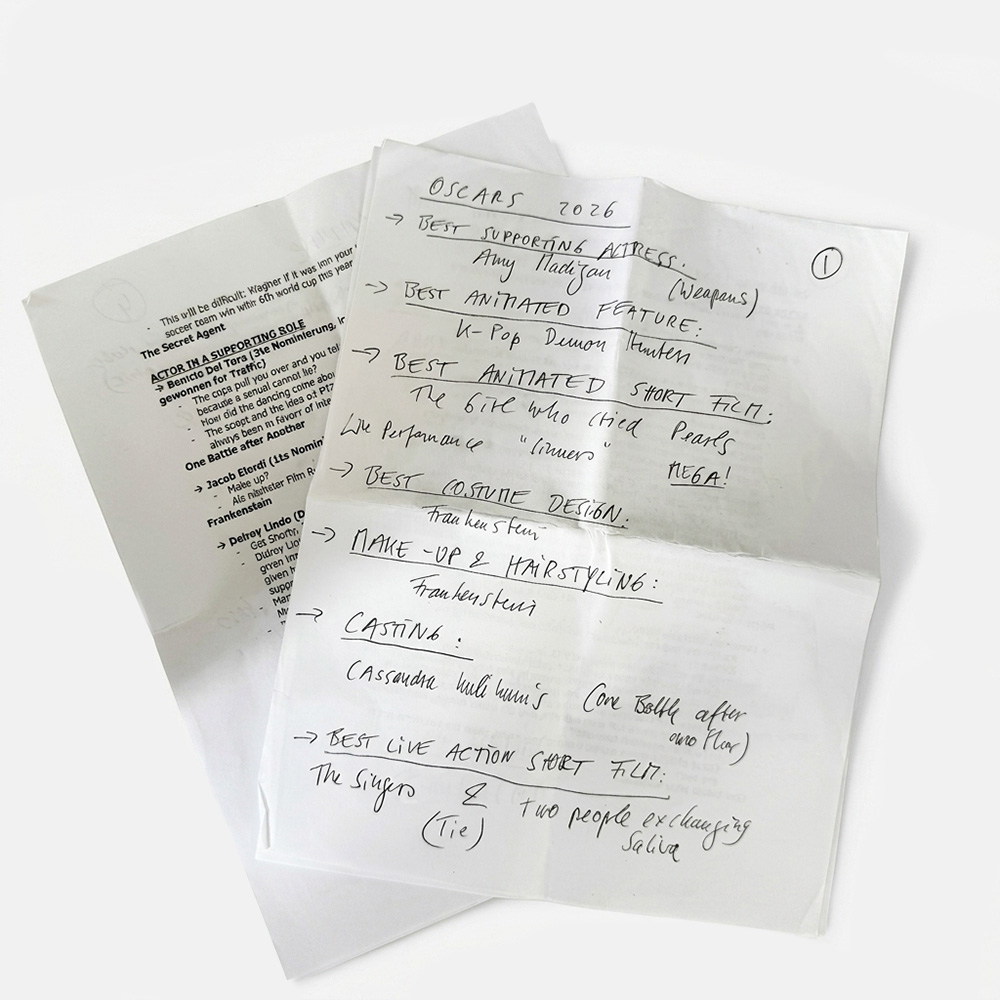 OSCARS 2026
①
→ BEST SUPPORTING ACTRESS:
Amy Madigan
(Weapons)
→ BEST ANIMATED FEATURE:
K-Pop Demon Hunters
→ BEST ANIMATED SHORT FILM:
The Girl who cried Pearls
Live Performance "Sinners"
MEGA!
→ BEST COSTUME DESIGN:
Frankenstein
→ MAKE-UP & HAIRSTYLING:
Frankenstein
→ CASTING:
Cassandra Kulukundis (One Battle after
another)
→ BEST LIVE ACTION SHORT FILM:
The Singers & Two people exchanging
(Tie) Saliva
- This will be difficult: Wagner if it was your
soccer team win 6th world cup this year
The Secret Agent
ACTOR IN A SUPPORTING ROLE
→ Benicio Del Toro (3te Nominierung,
gewonnen for Traffic)
- The cops pull you over and you tel
because a cannot lie?
- How did the dancing come abou
- The script and the idea of
- always been in favor of inte
One Battle after Another
→ Jacob Elordi (1ts Nomini
- Make up?
- Als nächster Film R
Frankenstein
→ Delroy Lindo (D
- Get Shorty,
- Lio
given
given h
supp
Mar